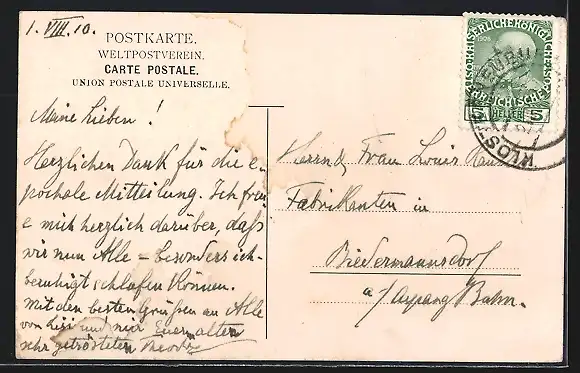 1. VIII. 10.
POSTKARTE.
WELTPOSTVEREIN.
CARTE POSTALE.
UNION POSTALE UNIVERSELLE.
Meine Lieben!
Herzlichen Dank für die e-
pochale Mitteilung. Ich freu-
e mich herzlich darüber, daß
wir nun Alle – besonders ich –
beruhigt schlafen können.
Mit den besten Grüßen an Alle
von Lisi und mir Euer alter
sehr getrösteter Theodor
Herrn & Frau Louis
Fabrikanten in
Biedermannsdorf
a/ Aspang Bahn.
KAISERLICHE KÖNIGLICHE
ÖSTERREICHISCHE POST
1908
5 HELLER 5
KLOSTERNEUBURG